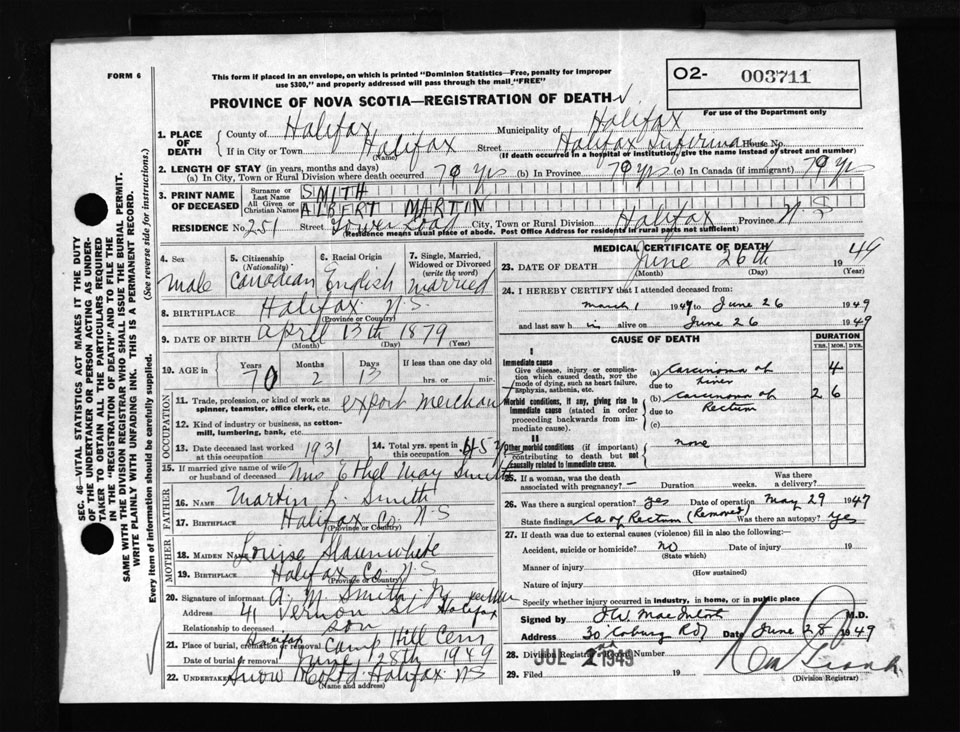 FORM 6
This form if placed in an envelope, on which is printed "Dominion Statistics—Free, penalty for improper
use $300," and properly addressed will pass through the mail "FREE"
O2- 003711
For use of the Department only
PROVINCE OF NOVA SCOTIA—REGISTRATION OF DEATH
1. PLACE OF DEATH
County of Halifax Municipality of Halifax
If in City or Town Halifax (Name) Street Halifax Infirmary House No.
(If death occurred in a hospital or institution, give the name instead of street and number)
2. LENGTH OF STAY (in years, months and days)
(a) In City, Town or Rural Division where death occurred 70 yrs (b) In Province 70 yrs (c) In Canada (if immigrant) 70 yrs
3. PRINT NAME OF DECEASED
Surname or Last Name SMITH
All Given or Christian Names ALBERT MARTIN
RESIDENCE No. 251 Street Tower Road City, Town or Rural Division Halifax Province N.S
(Residence means usual place of abode. Post Office Address for residents in rural parts not sufficient)
4. Sex Male
5. Citizenship (Nationality) Canadian
6. Racial Origin English
7. Single, Married, Widowed or Divorced (write the word) Married
8. BIRTHPLACE Halifax N.S.
(Province or Country)
9. DATE OF BIRTH April 13th 1879
(Month) (Day) (Year)
10. AGE in Years 70 Months 2 Days 13 If less than one day old hrs. or min.
OCCUPATION
11. Trade, profession, or kind of work as
spinner, teamster, office clerk, etc. export merchant
12. Kind of industry or business, as cotton-
mill, lumbering, bank, etc
13. Date deceased last worked at this occupation 1931
14. Total yrs. spent in this occupation 45
15. If married give name of wife or husband of deceased Mrs Ethel May Smith
FATHER
16. NAME Martin Smith
17. BIRTHPLACE Halifax Co. N.S
(Province or Country)
MOTHER
18. MAIDEN NAME Louise Slaunwhite
19. BIRTHPLACE Halifax Co N.S
(Province or Country)
20. Signature of informant A. M. Smith
Address 41 Vernon St Halifax
Relationship to deceased Son
21. Place of burial, cremation or removal Halifax Camp Hill Cem
Date of burial or removal June 28th 1949
22. Undertaker Snow Co Ltd Halifax NS
(Name and address)
MEDICAL CERTIFICATE OF DEATH
23. DATE OF DEATH June 26th 1949
(Month) (Day) (Year)
24. I HEREBY CERTIFY that I attended deceased from:
March 1 1947 to June 26 1949
and last saw h im alive on June 26 1949
CAUSE OF DEATH
DURATION
YRS. MOS. DYS.
I
Immediate cause
Give disease, injury or complication which caused death, not the mode of dying, such as heart failure, asphyxia, asthenia, etc.
(a) Carcinoma of Liver 4
due to
Morbid conditions, if any, giving rise to immediate cause (stated in order proceeding backwards from immediate cause)
(b) Carcinoma of Rectum 2 6
due to
(c)
II
Other morbid conditions (if important) contributing to death but not causally related to immediate cause.
none
25. If a woman, was the death associated with pregnancy? — Duration weeks. Was there a delivery?
26. Was there a surgical operation? yes Date of operation May 29 1947
State findings Ca of Rectum (Removed) Was there an autopsy? yes
27. If death was due to external causes (violence) fill in also the following:
Accident, suicide or homicide? no Date of injury 19
(State which)
Manner of injury
(How sustained)
Nature of injury
Specify whether injury occurred in industry, in home, or in public place
Signed by MacIntosh M.D.
Address 30 Coburg Rd Date June 28 1949
28. Division Registrar's Record Number
JUL 2 1949
29. Filed 19
(Division Registrar)
SEC. 46—VITAL STATISTICS ACT MAKES IT THE DUTY
OF THE UNDERTAKER OR PERSON ACTING AS UNDER-
TAKER TO OBTAIN ALL THE PARTICULARS REQUIRED
IN THE "REGISTRATION OF DEATH" AND TO FILE THE
SAME WITH THE DIVISION REGISTRAR WHO SHALL ISSUE THE BURIAL PERMIT.
WRITE PLAINLY WITH UNFADING INK. THIS IS A PERMANENT RECORD.
Every item of information should be carefully supplied. (See reverse side for instructions.)